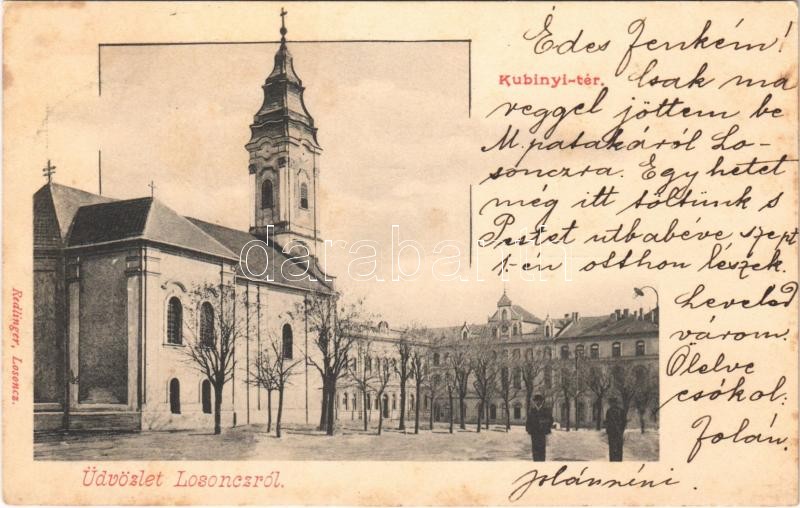 Édes Jenkém!
Kubinyi-tér.
Csak ma
reggel jöttem be
M. patakáról Lo-
sonczra. Egy hetet
még itt töltünk s
Pestet utbabéve szept
1.-én otthon leszek.
Leveled
várom.
Ölelve
csókol.
Jolán.
jolánnéni
darabanth
Redlinger, Losoncz.
Üdvözlet Losonczról.